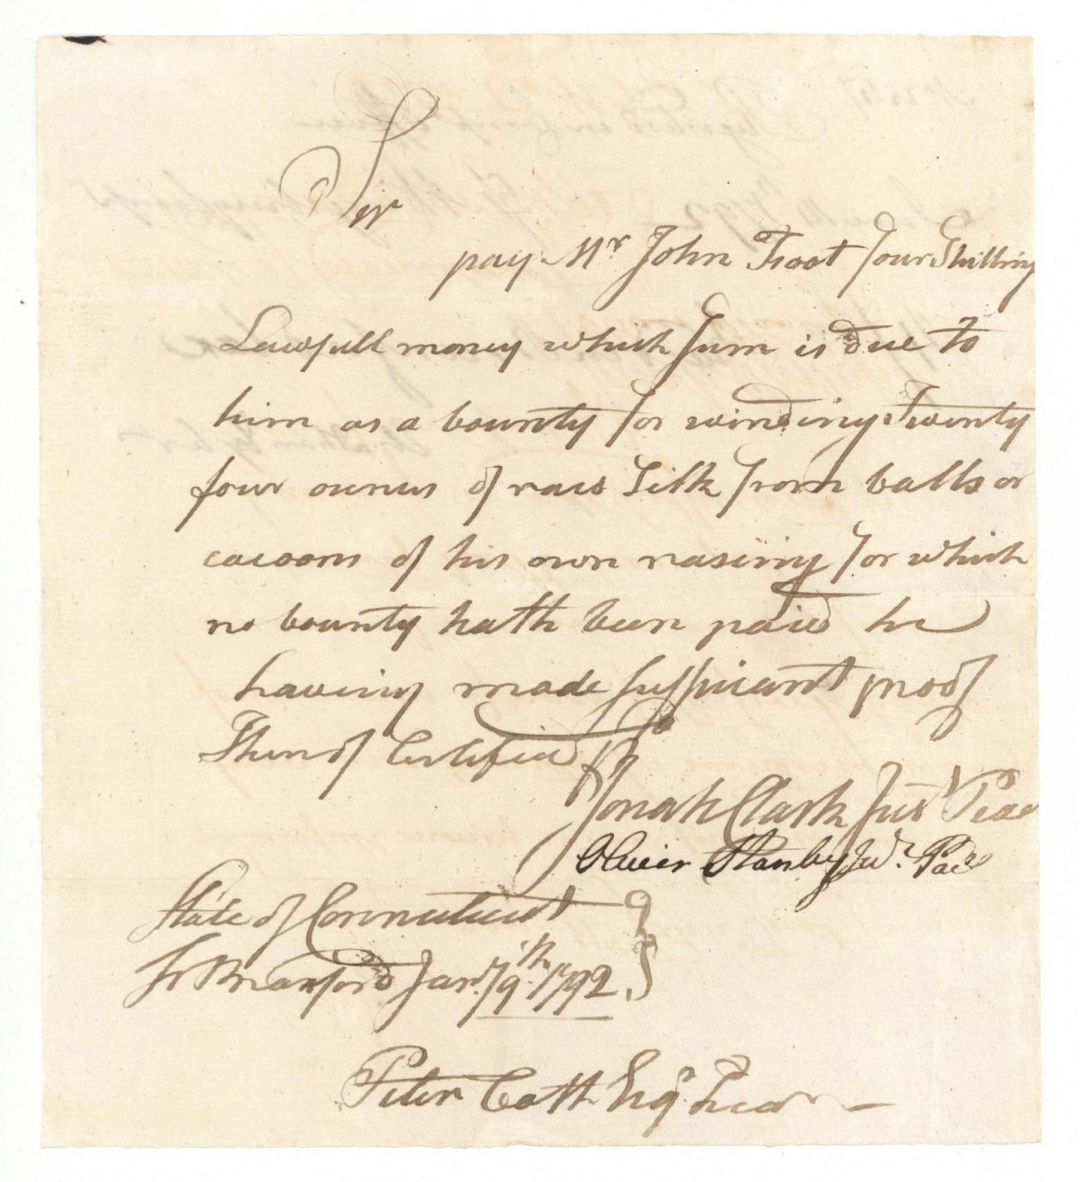 Sir
pay Mr John Foot four Shilling
Lawfull money which sum is due to
him as a bounty for winding Twenty
four ounces of raw Silk from balls or
cacoons of his own raising for which
no bounty hath been paid he
having made suffitiant proof
Thereof Certified
Jonah Clark Just Peac
Oliver Stanley Jus. Pace
State of Connecticut
Branford Janr 9th 1792
Peter Colt Esqr Treasr